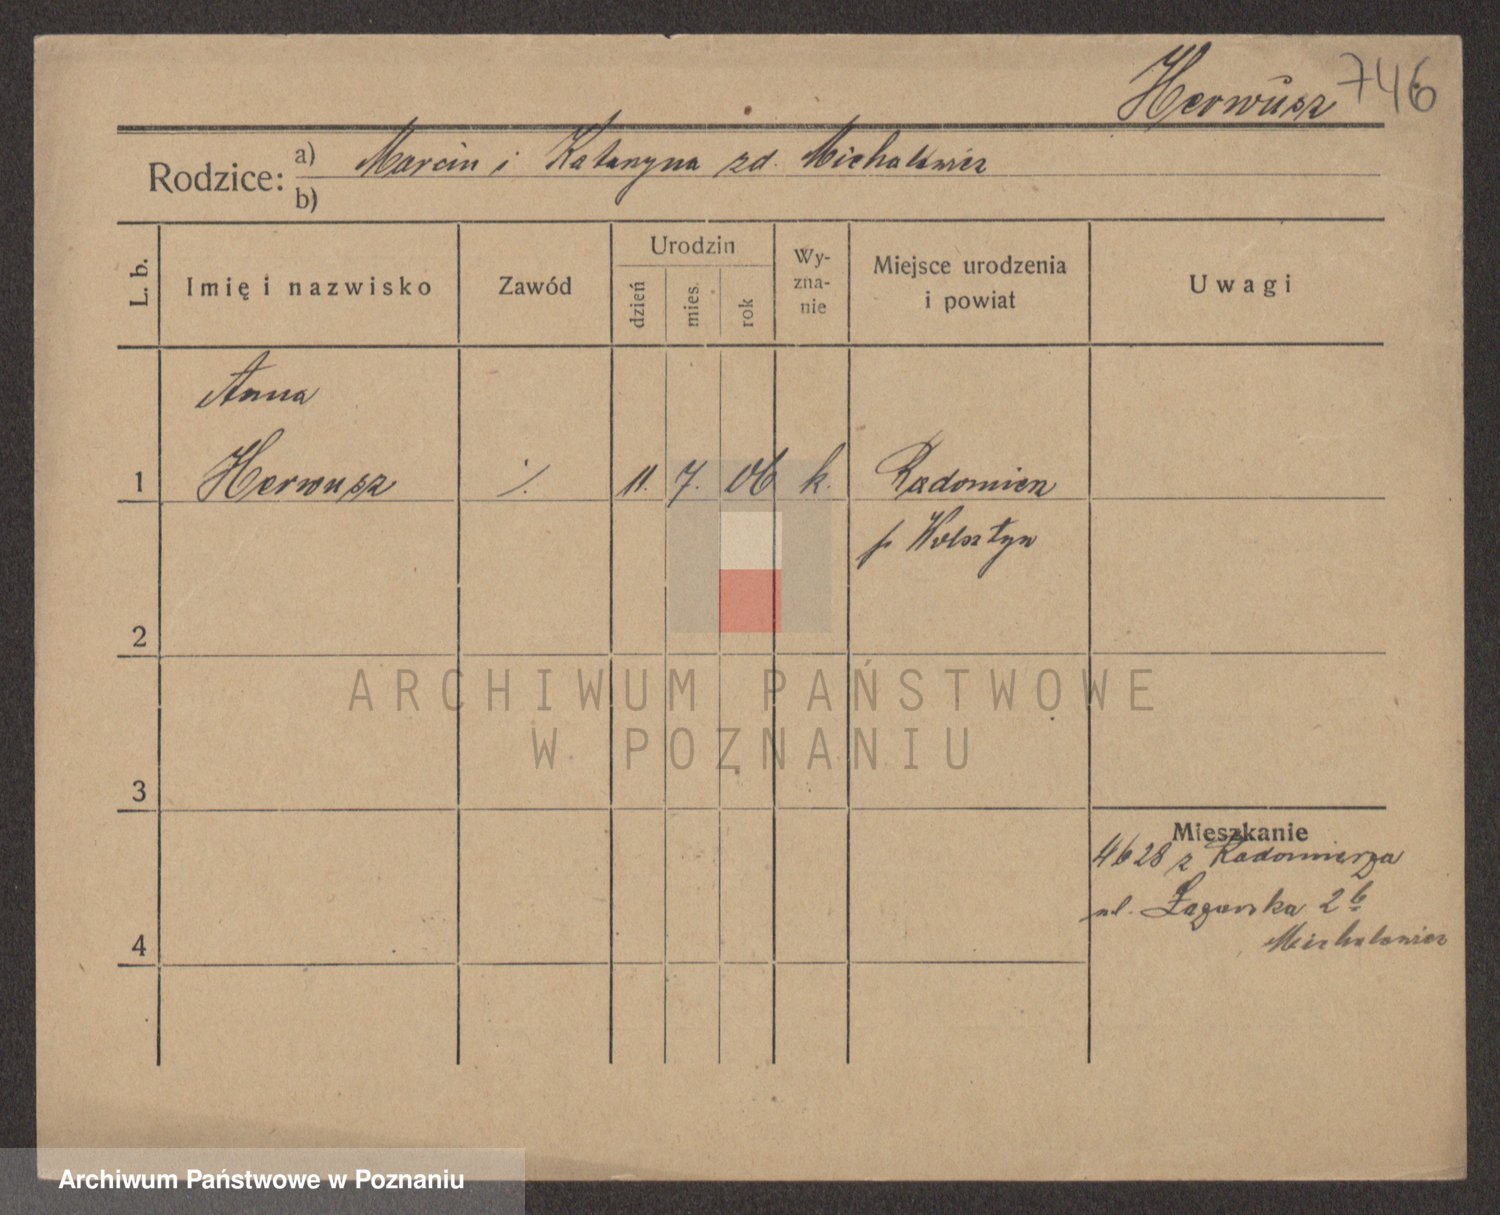 Herwusz 746
Rodzice: a) Marcin i Katarzyna zd. Michalewicz
b)
L. b. Imię i nazwisko Zawód Urodzin dzień mies. rok Wy-zna-nie Miejsce urodzenia i powiat Uwagi
Anna
1 Herwusz ·/. 11. 7. 06 k. Radomierz
p Wolsztyn
2
ARCHIWUM PAŃSTWOWE
W POZNANIU
3
Mieszkanie
4628 z Radomierza
ul. Łazarska 2 b
Michalewicz
4
Archiwum Państwowe w Poznaniu